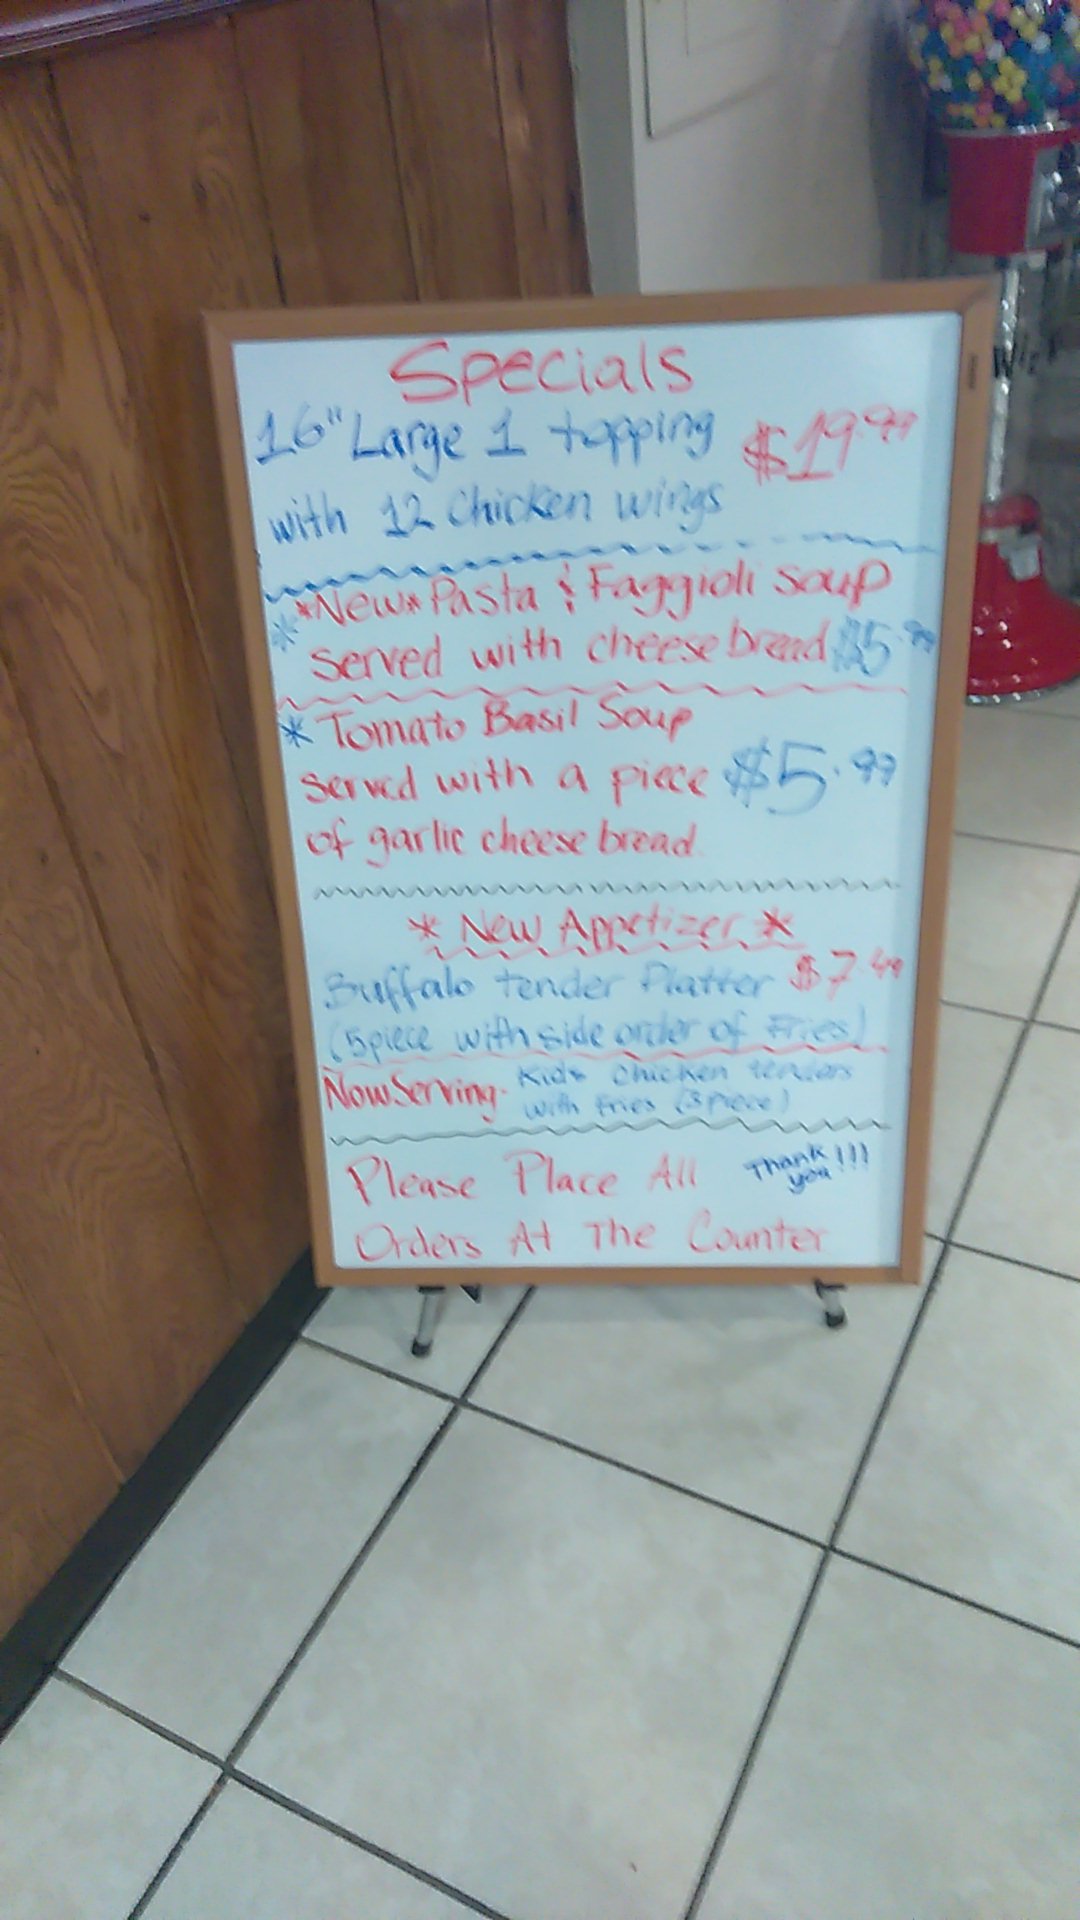 Specials
16" Large 1 topping $19.99
with 12 Chicken wings
*New* Pasta & Faggioli Soup
* served with cheese bread $5.99
* Tomato Basil Soup
served with a piece $5.99
of garlic cheese bread.
* New Appetizer *
Buffalo tender Platter $7.49
(5 piece with side order of Fries)
Now Serving- Kids Chicken tenders
with Fries (3 piece)
Please Place All Thank you!!!
Orders At The Counter